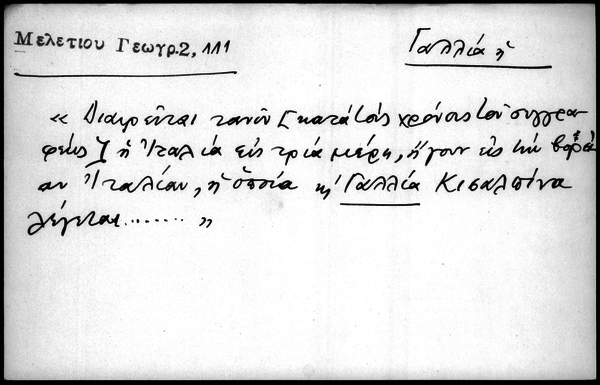 Μελετίου Γεωγρ. 2, 111
Γαλλία ἡ
« Διαιρεῖται τανῦν [κατὰ τοὺς χρόνους τοῦ συγγρα
φέως] ἡ Ἰταλία εἰς τρία μέρη, ἤγουν εἰς τὴν βορεί
αν Ἰταλίαν, ἡ ὁποία κỳ Γαλλία Κισαλπίνα
λέγεται........ »